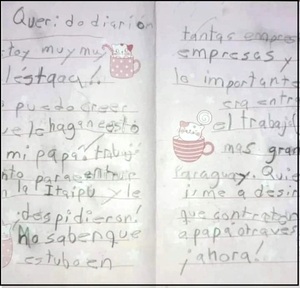 Queri do diario
toy muy mu
lestaaa!.
i puedo creer
ue le hagan esto
mi papa. trabaj
nto para entrar
n la Itaipu y le
¡despidieron!
No saben que
estubo en
tantas empres
empresas y
lo importante
era entr
el trabajo
mas gran
Paraguay. Quie
irme a desir
que contraten
a papa otra ves
¡ahora!